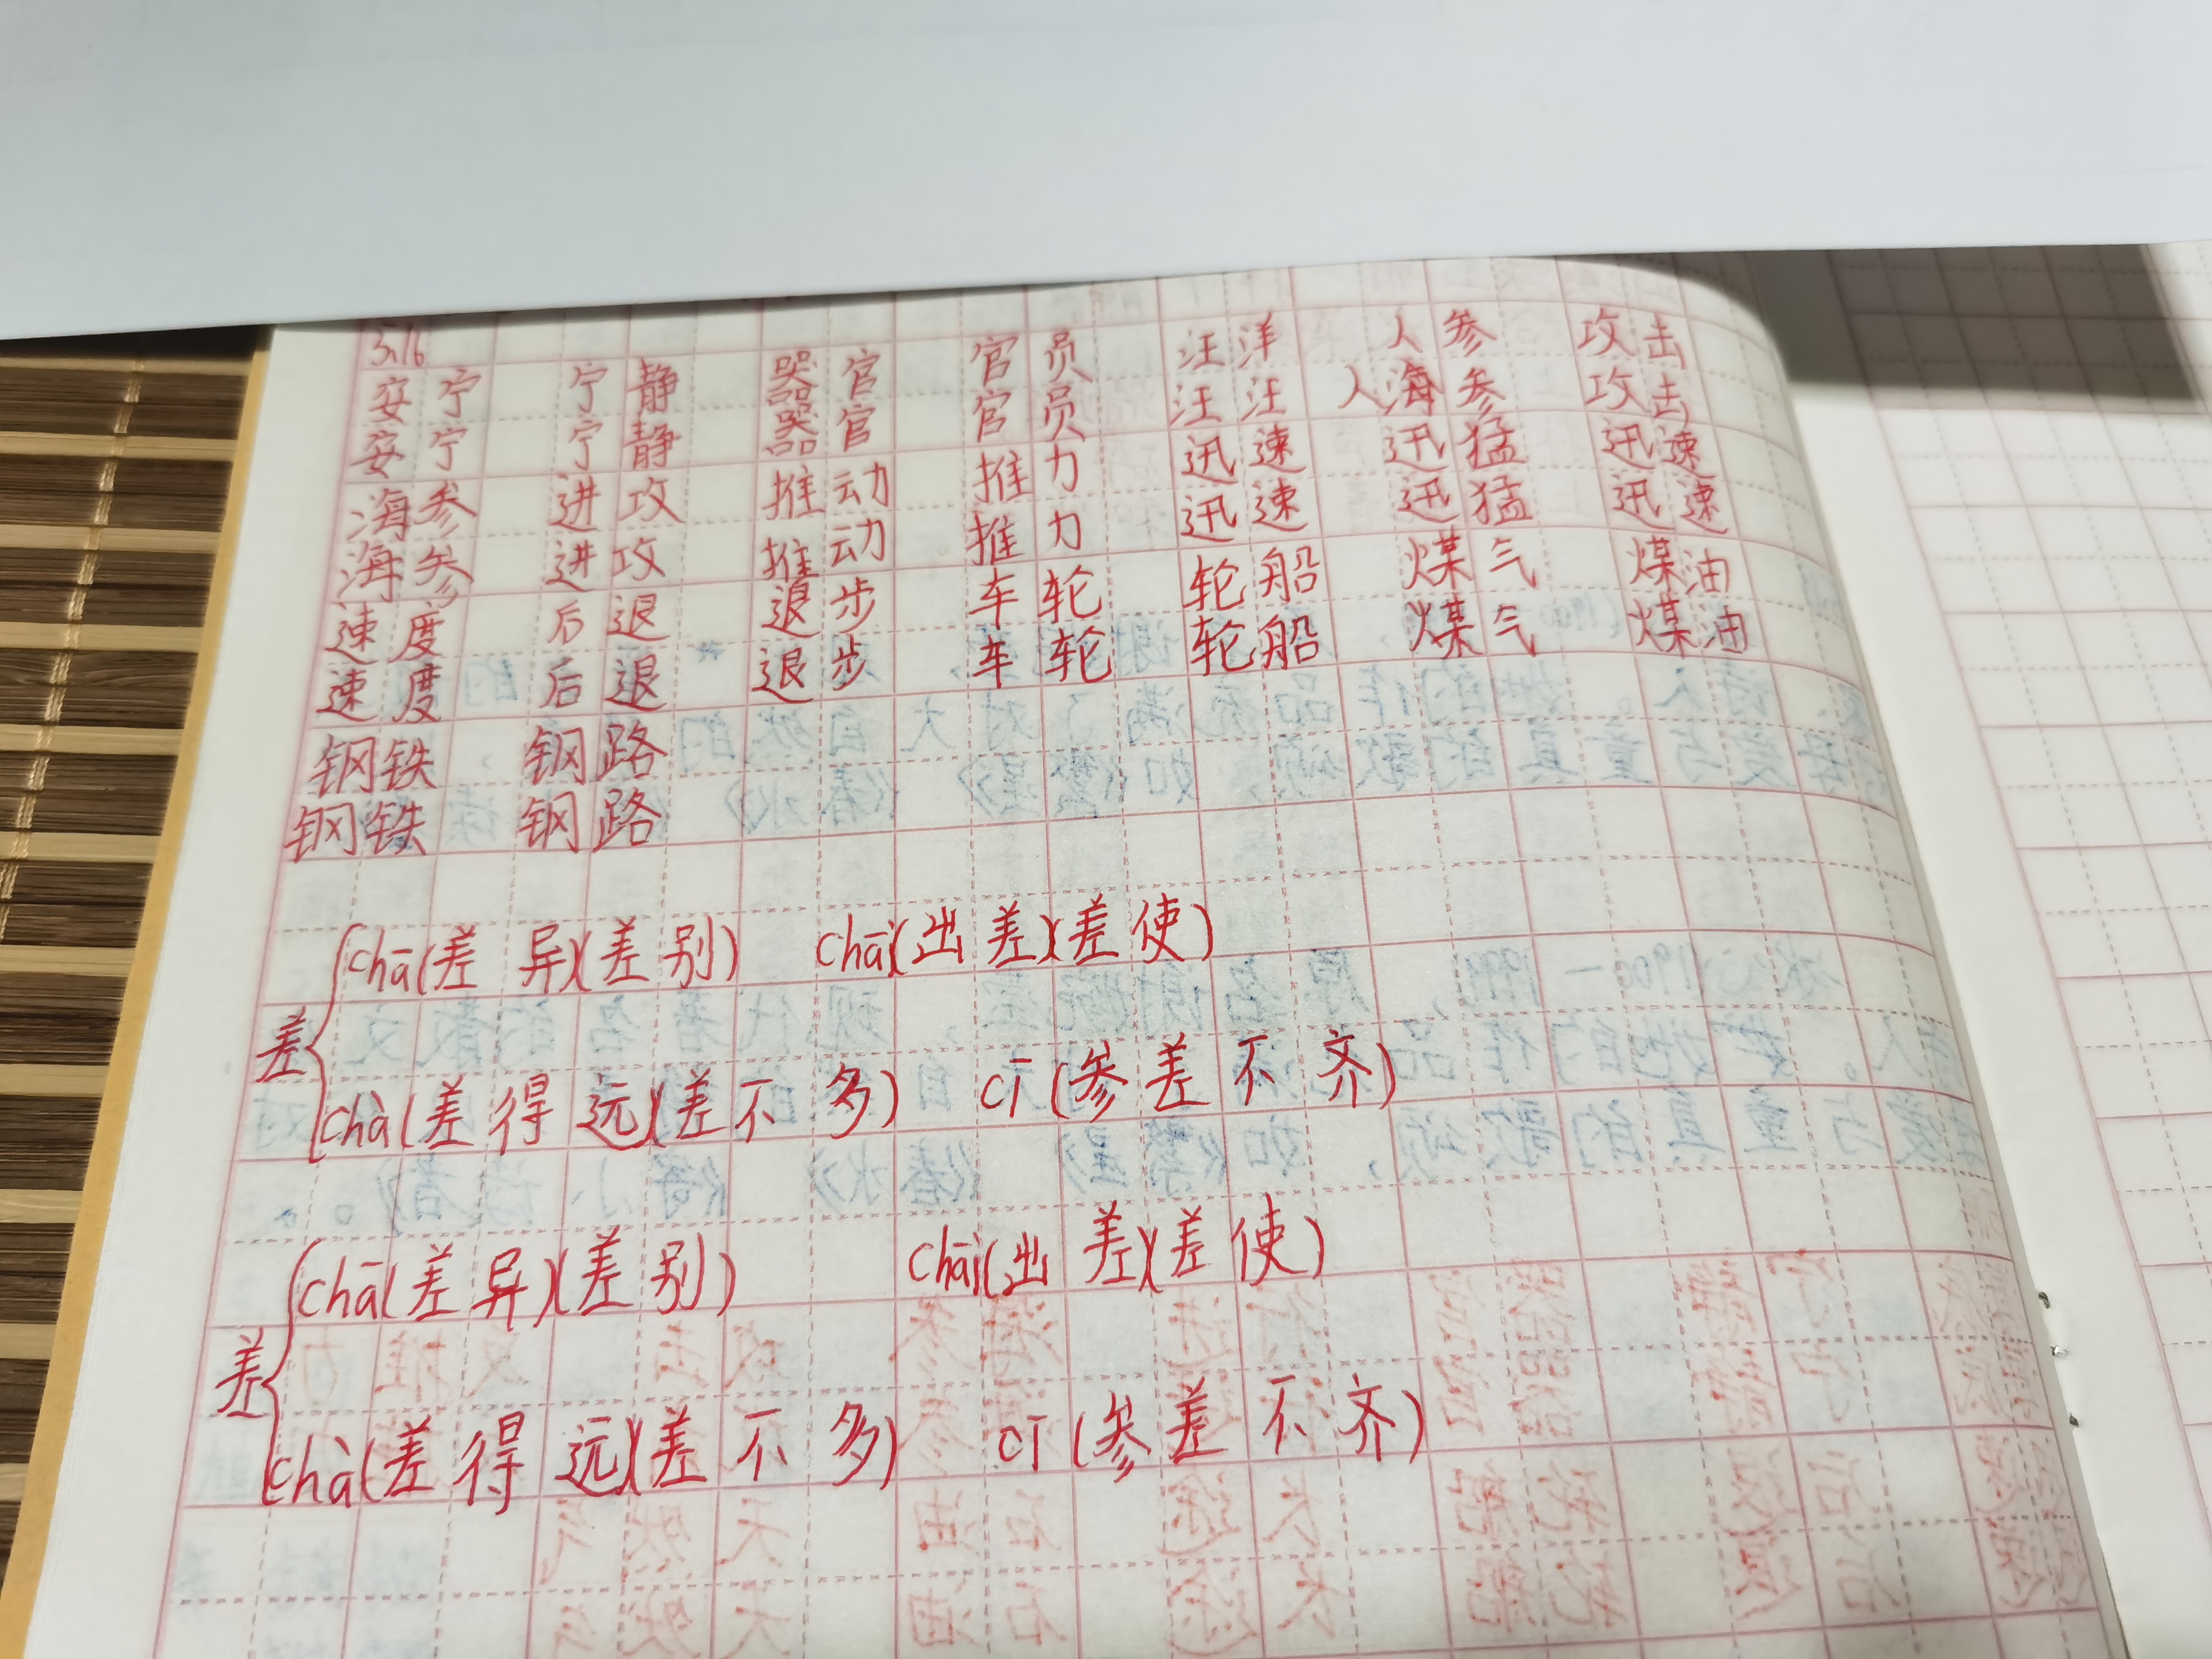 3.16
安宁 宁静 器官 官员 汪洋 人参 攻击
安宁 宁静 器官 官员 汪汪 人海参 攻击
海参 进攻 推动 推力 迅速 迅猛 迅速
海参 进攻 推动 推力 迅速 迅猛 迅速
速度 后退 退步 车轮 轮船 煤气 煤油
速度 后退 退步 车轮 轮船 煤气 煤油
钢铁 钢路
钢铁 钢路
差
chā(差异)(差别) chāi(出差)(差使)
chà(差得远)(差不多) cī(参差不齐)
差
chā(差异)(差别) chāi(出差)(差使)
chà(差得远)(差不多) cī(参差不齐)